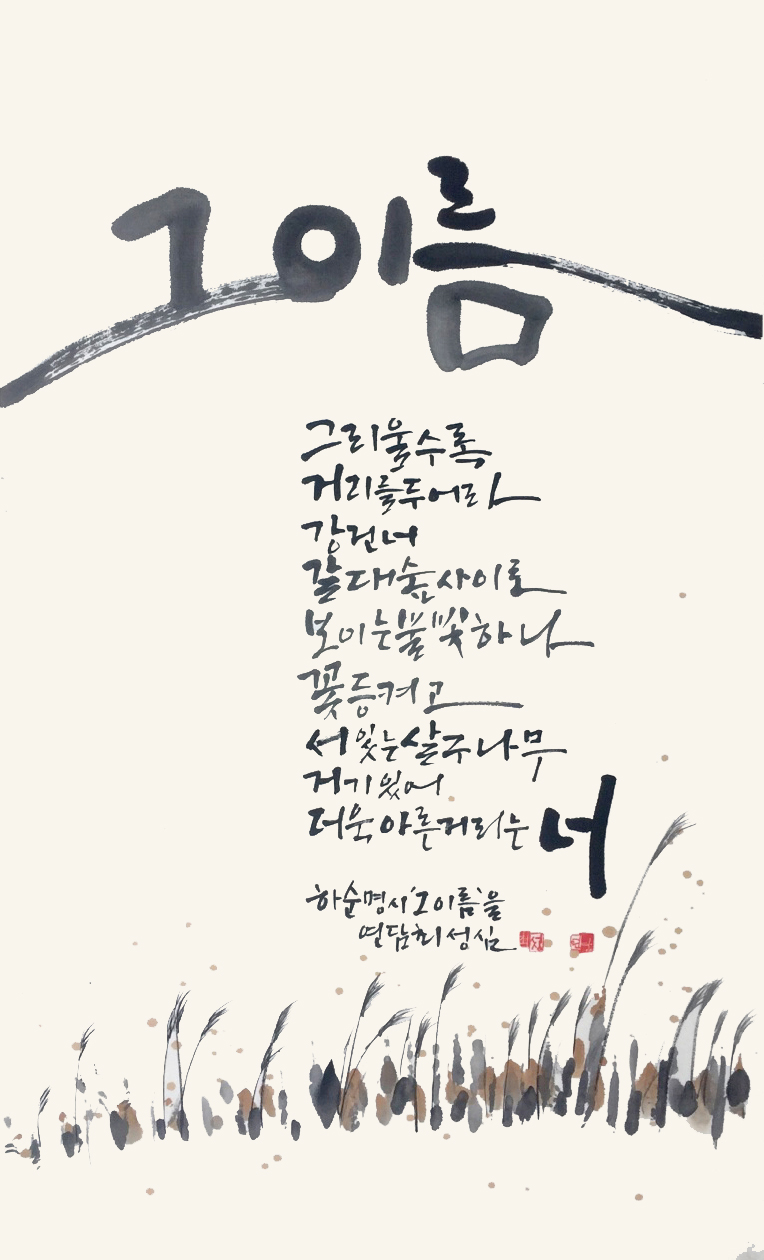 그 이름
그리울수록
거리를 두어라
강 건너
갈대숲 사이로
보이는 불빛 하나
꽃등 켜고
서 있는 살구나무
거기 있어
더욱 아른거리는 너
하순명 시 '그 이름'을
연담 최성심